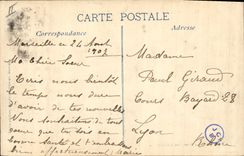 CARTE POSTALE
Correspondance
Adresse
Marseille le 24 Août
1907
Ma Chère Soeur
Ecris nous bientôt
le temps nous dure
d'avoir de tes nouvelles
Nous souhaitons de tout
coeur que tu sois en
bonne santé et t'embrassons
bien affectueusement
Madame
Paul Giraud
Cours Bayard 28
Lyon
Rhône